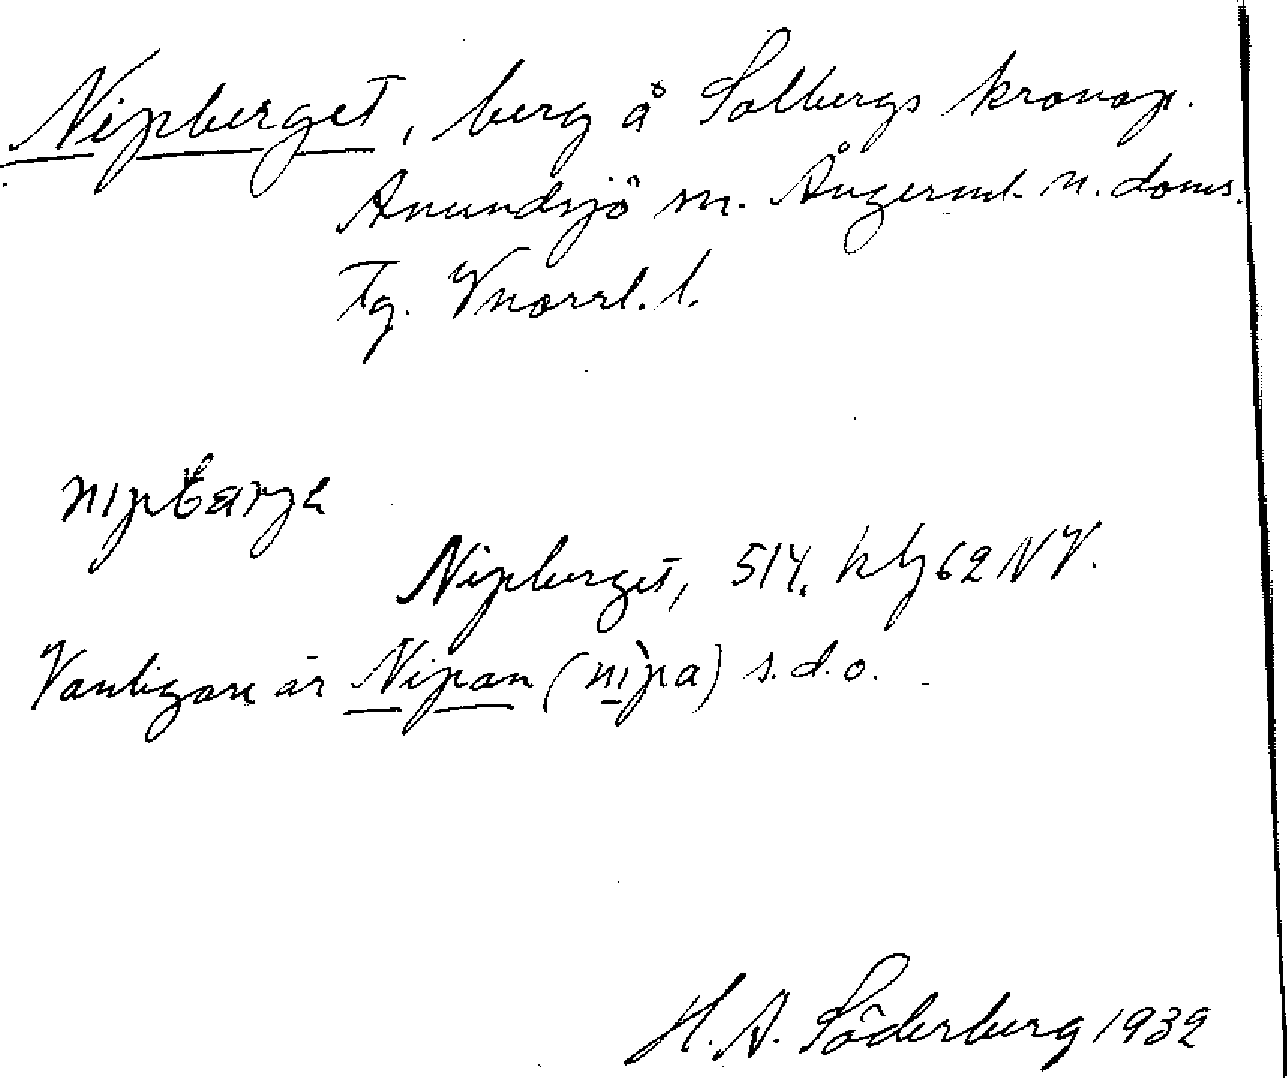 Nipberget, berg å Solbergs kronop.
Anundsjö sn. Ångerml. n. doms.
Tg. Vnorrl. l.
Nipberget, 514. hbl 62 NV.
Vanligare är Nipan (nìpa) s.d.o.
H. A. Söderberg 1932